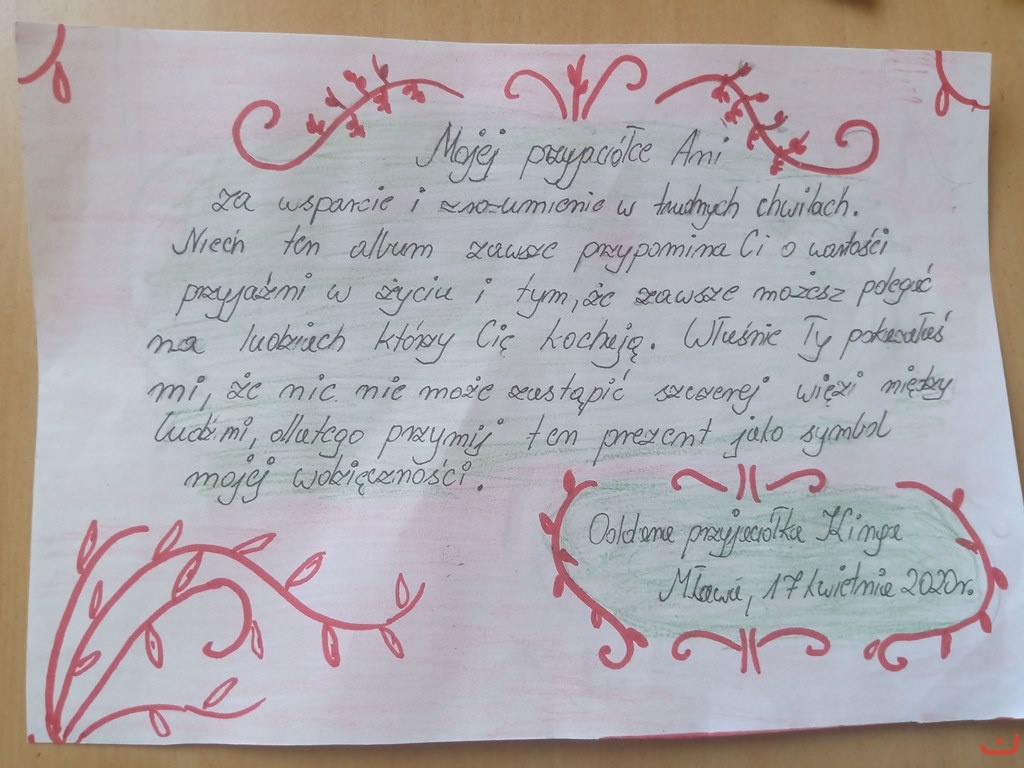 Mojej przyjaciółce Ani
za wsparcie i zrozumienie w trudnych chwilach.
Niech ten album zawsze przypomina Ci o wartości
przyjaźni w życiu i tym, że zawsze możesz polegać
na ludziach którzy Cię kochają. Właśnie Ty pokazałaś
mi, że nic nie może zastąpić szczerej więzi między
ludźmi, dlatego przymij ten prezent jako symbol
mojej wdzięczności.
Oddana przyjaciółka Kinga
Mława, 17 kwietnia 2020r.